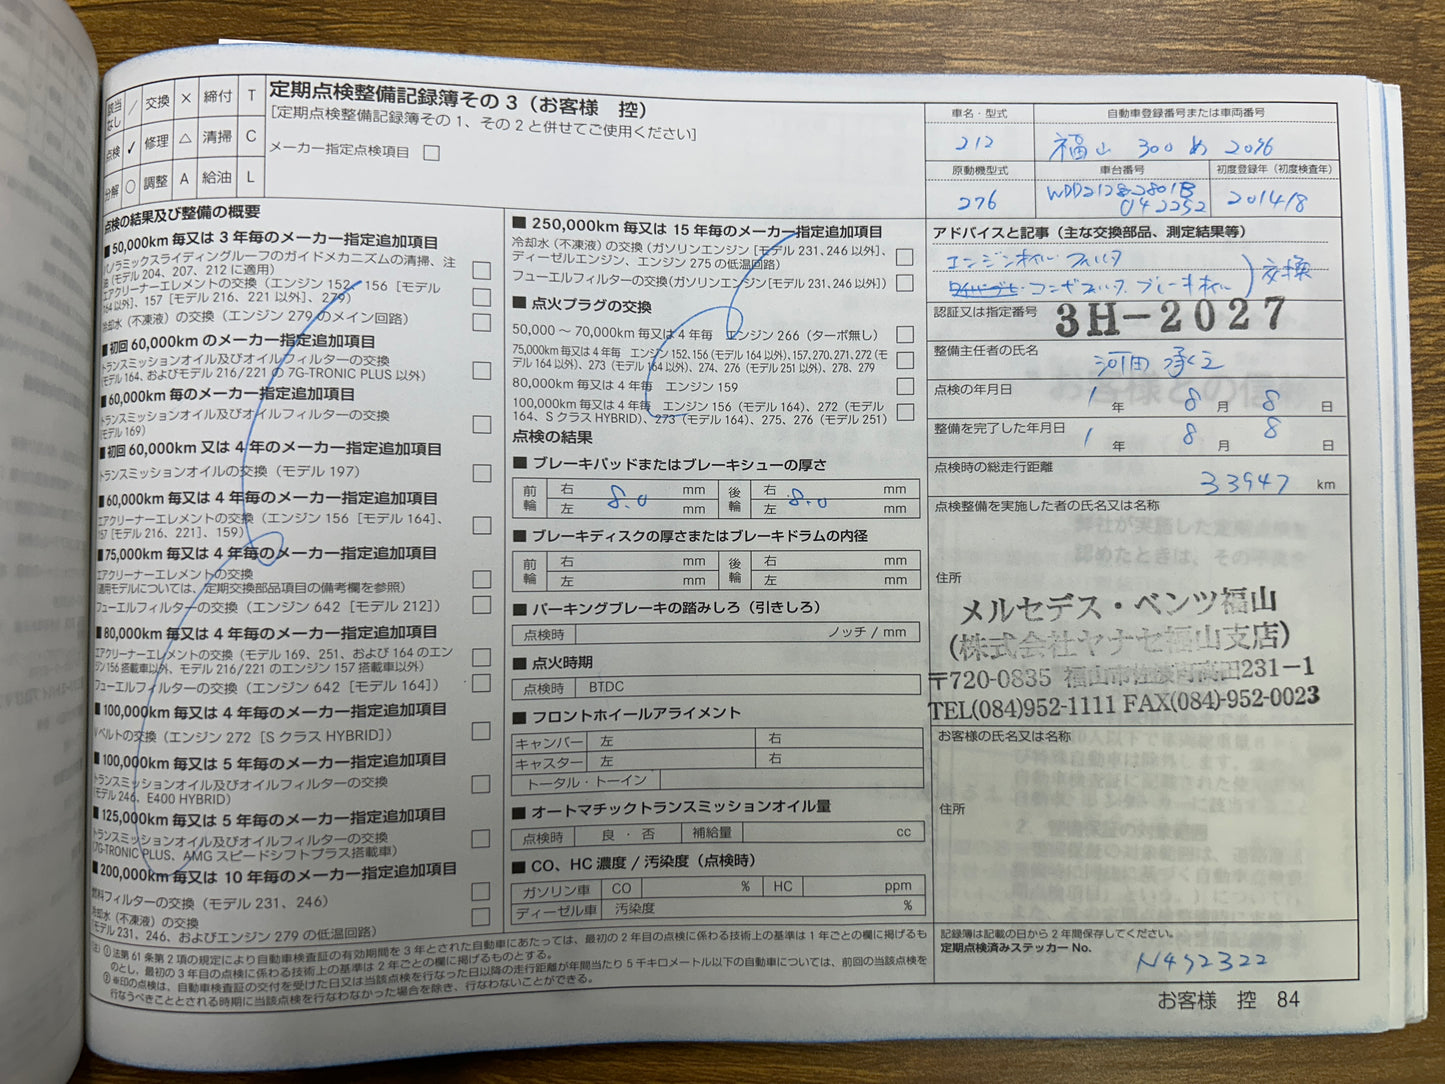 該当なし ／ 交換 × 締付 T
点検 ✓ 修理 △ 清掃 C
分解 ○ 調整 A 給油 L
定期点検整備記録簿その3（お客様 控）
[定期点検整備記録簿その1、その2と併せてご使用ください]
メーカー指定点検項目 □
点検の結果及び整備の概要
■50,000km 毎又は 3 年毎のメーカー指定追加項目
パノラミックスライディングルーフのガイドメカニズムの清掃、注
油（モデル 204、207、212 に適用）
エアクリーナーエレメントの交換（エンジン 152、156［モデル
164 以外］、157［モデル 216、221 以外］、279）
冷却水（不凍液）の交換（エンジン 279 のメイン回路）
■初回 60,000km のメーカー指定追加項目
トランスミッションオイル及びオイルフィルターの交換
（モデル 164、およびモデル 216/221 の 7G-TRONIC PLUS 以外）
■60,000km 毎のメーカー指定追加項目
トランスミッションオイル及びオイルフィルターの交換
（モデル 169）
■初回 60,000km 又は 4 年毎のメーカー指定追加項目
トランスミッションオイルの交換（モデル 197）
■60,000km 毎又は 4 年毎のメーカー指定追加項目
エアクリーナーエレメントの交換（エンジン 156［モデル 164］、
157［モデル 216、221］、159）
■75,000km 毎又は 4 年毎のメーカー指定追加項目
エアクリーナーエレメントの交換
（適用モデルについては、定期交換部品項目の備考欄を参照）
フューエルフィルターの交換（エンジン 642［モデル 212］）
■80,000km 毎又は 4 年毎のメーカー指定追加項目
エアクリーナーエレメントの交換（モデル 169、251、および 164 のエン
ジン 156 搭載車以外、モデル 216/221 のエンジン 157 搭載車以外）
フューエルフィルターの交換（エンジン 642［モデル 164］）
■100,000km 毎又は 4 年毎のメーカー指定追加項目
Vベルトの交換（エンジン 272［S クラス HYBRID］）
■100,000km 毎又は 5 年毎のメーカー指定追加項目
トランスミッションオイル及びオイルフィルターの交換
（モデル 246、E400 HYBRID）
■125,000km 毎又は 5 年毎のメーカー指定追加項目
トランスミッションオイル及びオイルフィルターの交換
（7G-TRONIC PLUS、AMG スピードシフトプラス搭載車）
■200,000km 毎又は 10 年毎のメーカー指定追加項目
燃料フィルターの交換（モデル 231、246）
冷却水（不凍液）の交換
（モデル 231、246、およびエンジン 279 の低温回路）
■ 250,000km 毎又は 15 年毎のメーカー指定追加項目
冷却水（不凍液）の交換（ガソリンエンジン［モデル 231、246 以外］、
ディーゼルエンジン、エンジン 275 の低温回路）
フューエルフィルターの交換（ガソリンエンジン［モデル 231、246 以外］）
■ 点火プラグの交換
50,000 ～ 70,000km 毎又は 4 年毎 エンジン 266（ターボ無し）
75,000km 毎又は 4 年毎 エンジン 152、156（モデル 164 以外）、157、270、271、272（モ
デル 164 以外）、273（モデル 164 以外）、274、276（モデル 251 以外）、278、279
80,000km 毎又は 4 年毎 エンジン 159
100,000km 毎又は 4 年毎 エンジン 156（モデル 164）、272（モデル
164、S クラス HYBRID）、273（モデル 164）、275、276（モデル 251）
点検の結果
■ ブレーキパッドまたはブレーキシューの厚さ
前輪 右 8.0 mm 後輪 右 8.0 mm
左 mm 左 mm
■ ブレーキディスクの厚さまたはブレーキドラムの内径
前輪 右 mm 後輪 右 mm
左 mm 左 mm
■ パーキングブレーキの踏みしろ（引きしろ）
点検時 ノッチ / mm
■ 点火時期
点検時 BTDC
■ フロントホイールアライメント
キャンバー 左 右
キャスター 左 右
トータル・トーイン
■ オートマチックトランスミッションオイル量
点検時 良 ・ 否 補給量 cc
■ CO、HC 濃度 / 汚染度（点検時）
ガソリン車 CO % HC ppm
ディーゼル車 汚染度 %
車名・型式 自動車登録番号または車両番号
212 福山 300 め 2096
原動機型式 車台番号 初度登録年（初度検査年）
276 WDD2128-2801B
042252 2014/8
アドバイスと記事（主な交換部品、測定結果等）
エンジンオイル フィルタ
コンビフィルタ ブレーキオイル 交換
認証又は指定番号 3H-2027
整備主任者の氏名
河田 承之
点検の年月日 1 年 8 月 8 日
整備を完了した年月日 1 年 8 月 8 日
点検時の総走行距離
33947 km
点検整備を実施した者の氏名又は名称
住所
メルセデス・ベンツ福山
(株式会社ヤナセ福山支店)
〒720-0835 福山市佐波町高田231-1
TEL(084)952-1111 FAX(084)-952-0023
お客様の氏名又は名称
住所
記録簿は記載の日から 2 年間保存してください。
定期点検済みステッカー No.
N492322
（注）① 法第 61 条第 2 項の規定により自動車検査証の有効期間を 3 年とされた自動車にあたっては、最初の 2 年目の点検に係わる技術上の基準は 1 年ごとの欄に掲げるも
のとし、最初の 3 年目の点検に係わる技術上の基準は 2 年ごとの欄に掲げるものとする。
② ※印の点検は、自動車検査証の交付を受けた日又は当該点検を行なった日以降の走行距離が年間当たり 5 千キロメートル以下の自動車については、前回の当該点検を
行なうべきこととされる時期に当該点検を行なわなかった場合を除き、行なわないことができる。
お客様 控 84